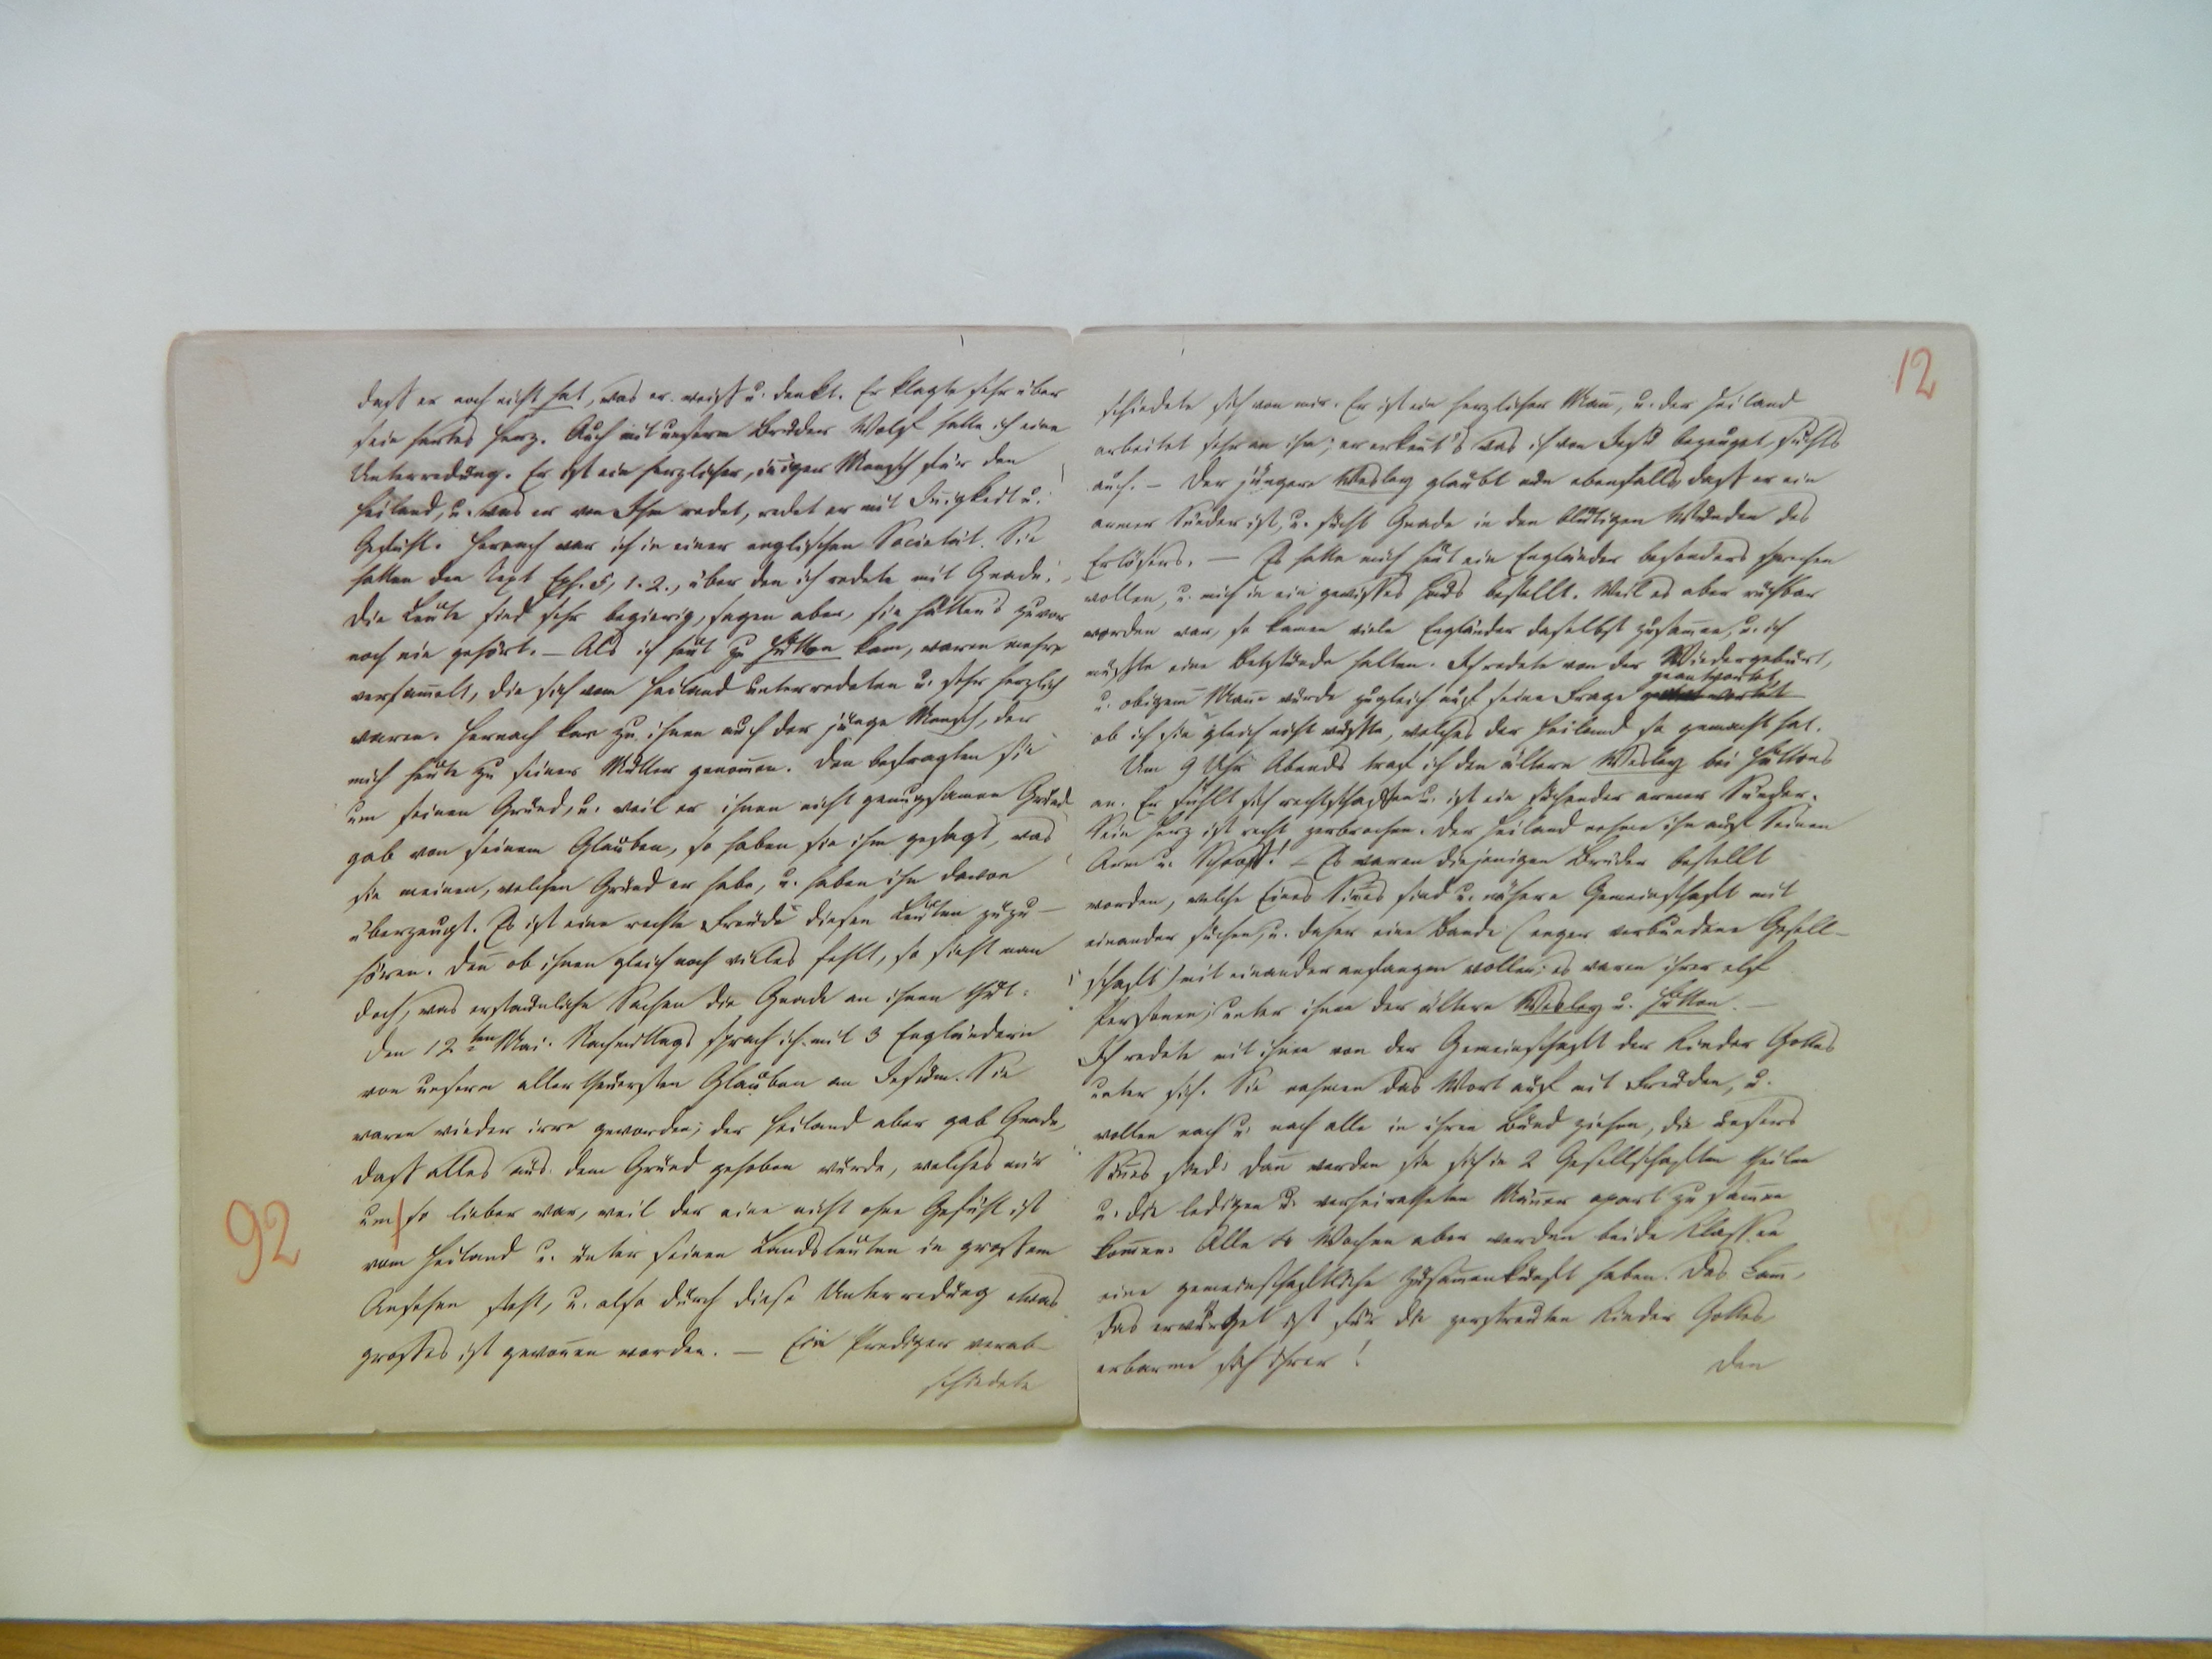 dass er noch nicht hat, was er weiss u. denkt. Er klagte sehr über
sein hartes Herz. Auch mit unserm Bruder Wolf hatte ich eine
Unterredung. Er ist ein herzlicher, iñiger Mensch für den
Heiland, u. was er von Ihm redet, redet er mit Iñigkeit u.
Gefühl. Hernach war ich in einer englischen Societät. Sie
hatten den Text Eph. 5, 1. 2., über den ich redete mit Gnade.
Die Leute sind sehr begierig, sagen aber, sie hätten's zuvor
noch nie gehört. — Als ich heut zu Hutton kam, waren mehre
versam̄elt, die sich vom Heiland unterredeten u. sehr herzlich
waren. Hernach kam zu ihnen auch der junge Mensch, der
mich heute zu seiner Mutter genom̄en. Den befragten sie
um seinen Grund, u. weil er ihnen nicht genugsamen Grund
gab von seinem Glauben, so haben sie ihm gesagt, was
sie meinen, welchen Grund er habe, u. haben ihn davon
überzeugt. Es ist eine rechte Freude diesen Leuten zuzu-
hören. Deñ ob ihnen gleich noch vieles fehlt, so sieht man
doch, was erstaunliche Sachen die Gnade an ihnen thut.
Den 12ten Mai. Nachmittags sprach ich mit 3 Engländern
von unserm allertheuersten Glauben an Jesum. Sie
waren wieder irre geworden; der Heiland aber gab Gnade,
dass alles aus dem Grund gehoben wurde, welches mir
92 um so lieber war, weil der eine nicht ohne Gefühl ist
vom Heiland u. unter seinen Landsleuten in grossem
Ansehen steht, u. also durch diese Unterredung etwas
grosses ist gewoñen worden. — Ein Prediger verab-
schiedete
12
schiedete sich von mir. Er ist ein herzlicher Mañ, u. der Heiland
arbeitet sehr an ihm; er erkeñt's was ich von Jesu bezeuget, suchts
auch. — Der jüngere Wesley glaubt nun ebenfalls, dass er ein
armer Sünder ist, u. sucht Gnade in den blutigen Wunden des
Erlösers. — Es hatte mich heut ein Engländer besonders sprechen
wollen, u. mich in ein gewisses Haus bestellt. Weil es aber ruchbar
worden war, so kamen viele Engländer daselbst zusam̄en, u. ich
musste eine Betstunde halten. Ich redete von der Wiedergeburt,
geantwortet,
u. obigem Mañe wurde zugleich auf seine Frage geantwortet
ob ich sie gleich nicht wusste, welches der Heiland so gemacht hat.
Um 9 Uhr Abends traf ich den ältern Wesley bei Huttons
an. Er fühlt sich rechtschaffen u. ist ein suchender armer Sünder.
Sein Herz ist recht zerbrochen. Der Heiland nehme ihn auf Seinen
Arm u. Schooss! — Es waren diejenigen Brüder bestellt
worden, welche Eines Siñes sind u. nähere Gemeinschaft mit
einander suchen, u. daher eine Bande (enger verbundene Gesell-
schaft) mit einander anfangen wollen; es waren ihrer elf
Personen, unter ihnen der ältere Wesley u. Hutton. —
Ich redete mit ihnen von der Gemeinschaft der Kinder Gottes
unter sich. Sie nahmen das Wort auf mit Freuden, u.
wollen nach u. nach alle in ihren Bund ziehen, die unsers
Siñes sind. Dañ werden sie sich in 2 Gesellschaften theilen
u. die ledigen u. verheiratheten Mäñer apart zusam̄en
kom̄en. Alle Wochen aber werden beide Klassen
eine gemeinschaftliche Zusam̄enkunft haben. Das Lam̄,
das erwürget ist für die zerstreuten Kinder Gottes,
erbarme sich ihrer!
Den